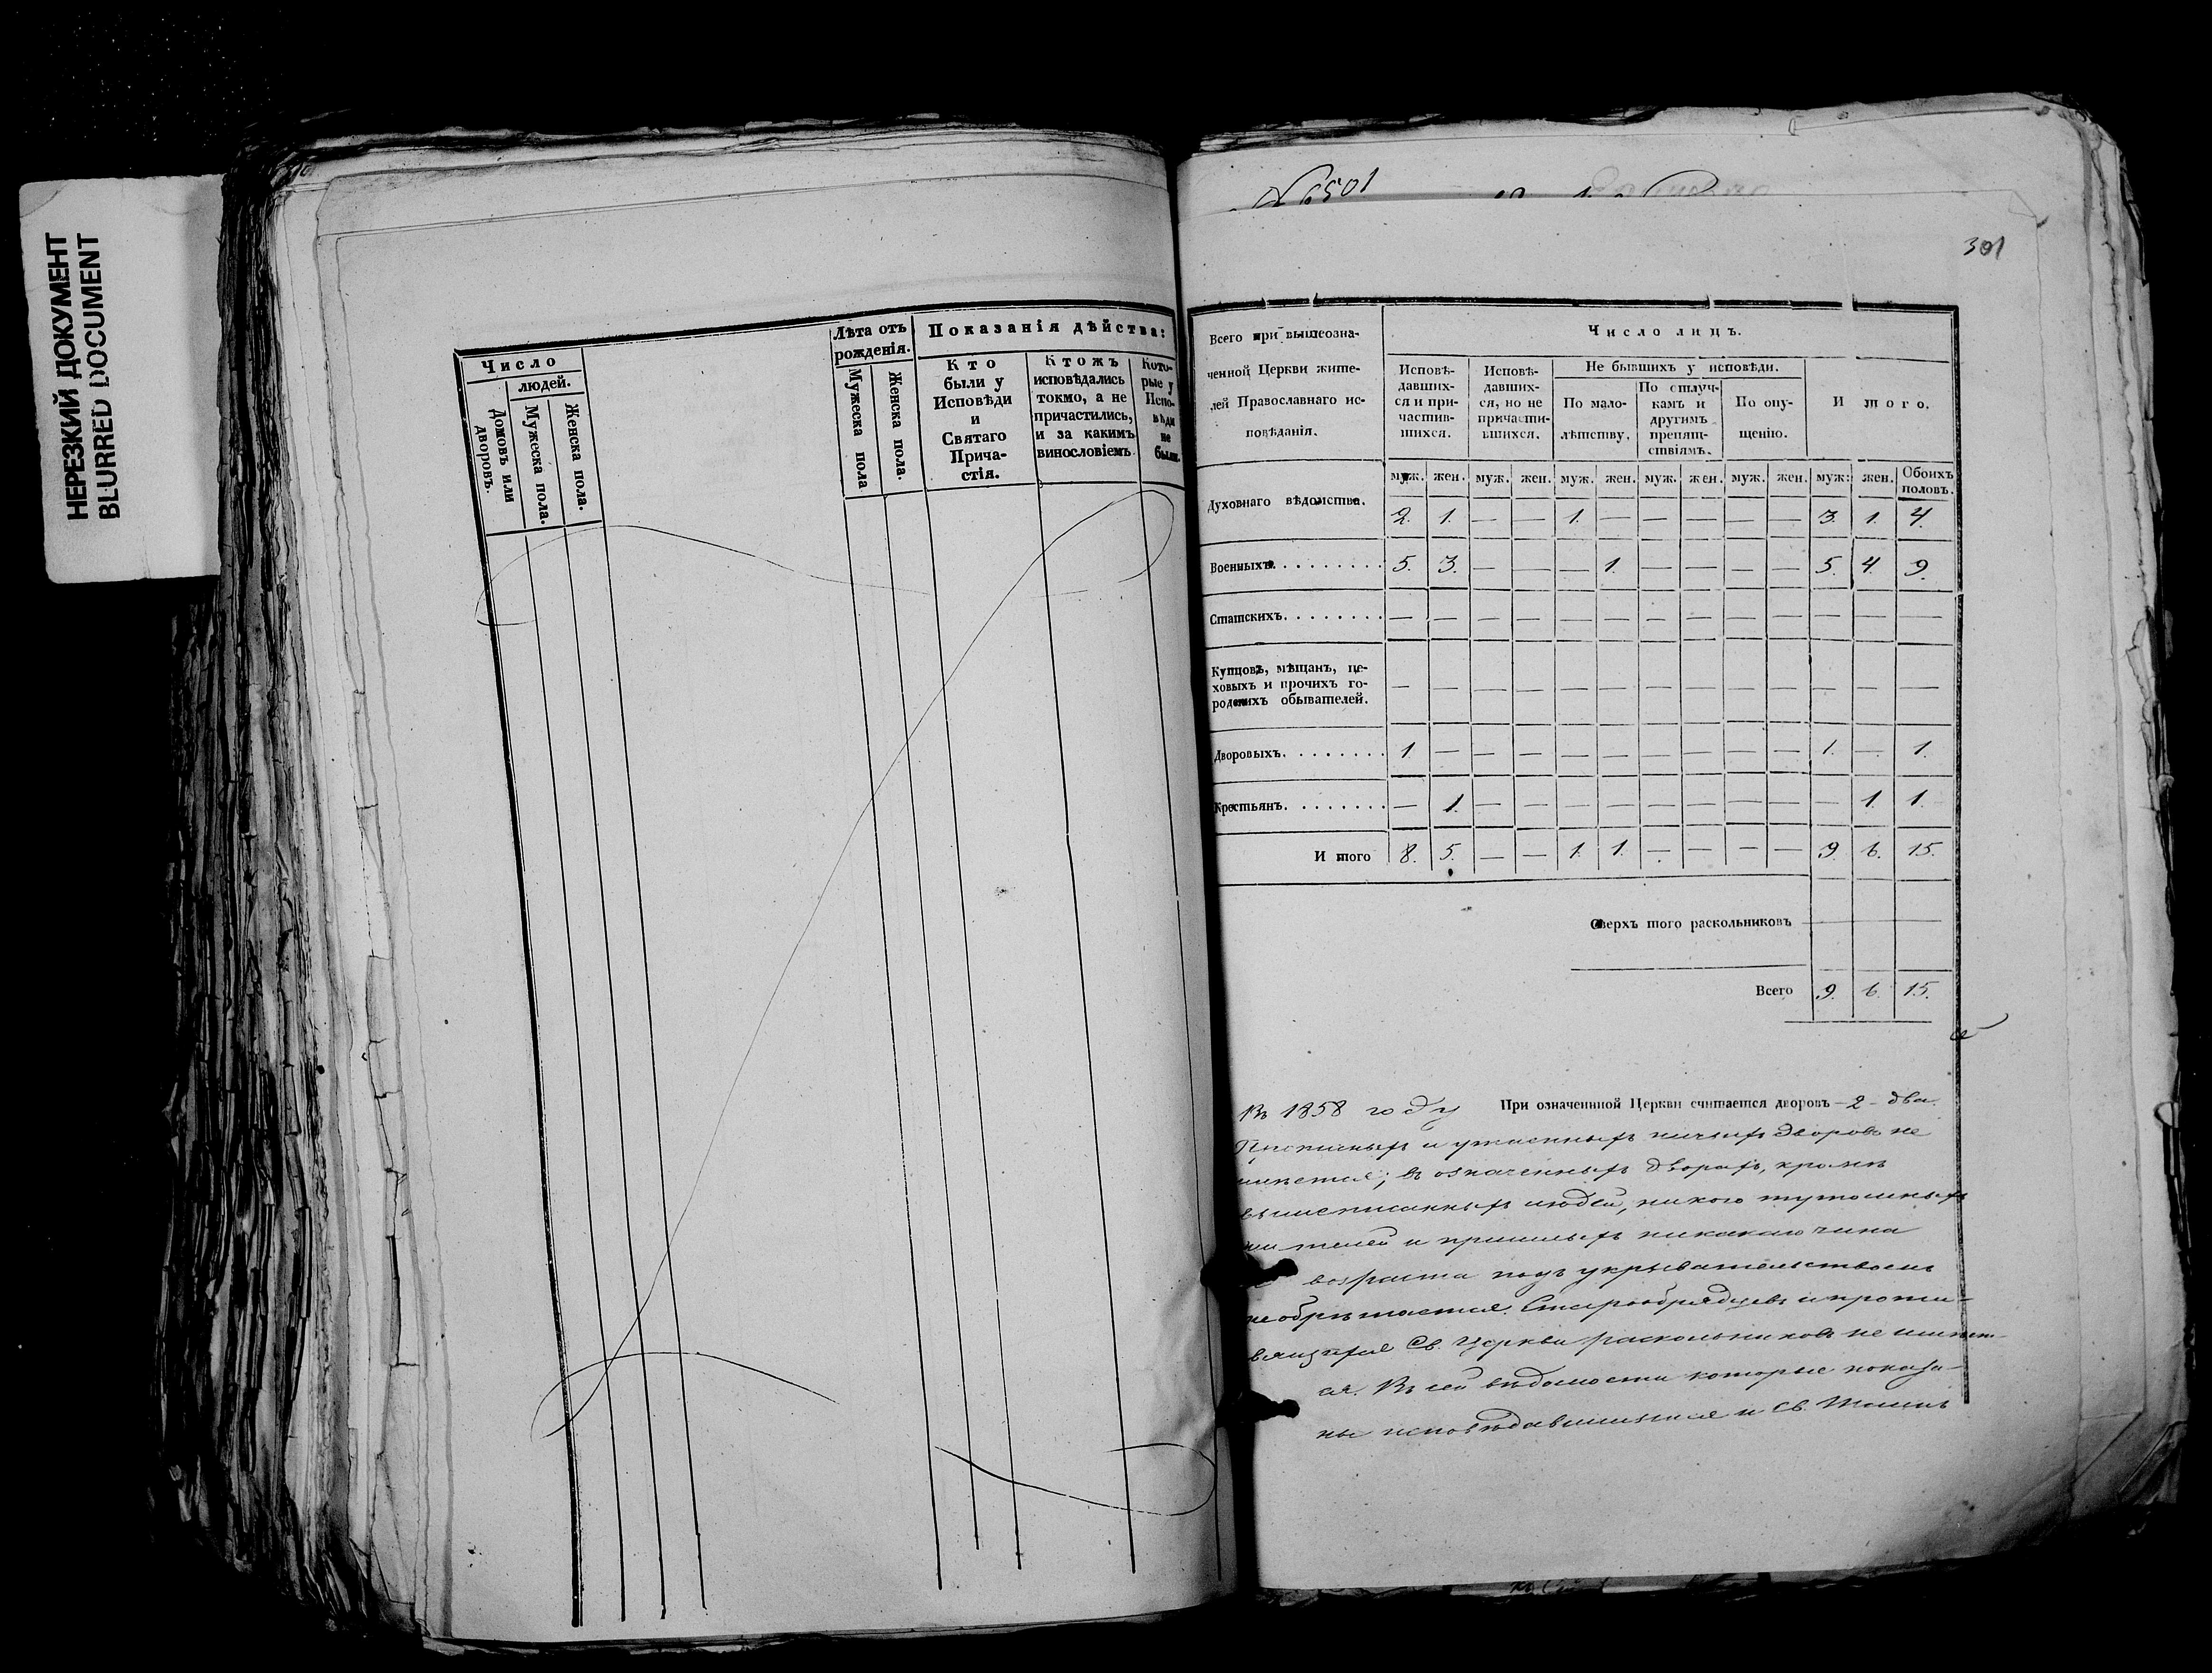 НЕРЕЗКИЙ ДОКУМЕНТ
BLURRED DOCUMENT
Число
людей.
Домовъ или дворовъ.
Мужеска пола.
Женска пола.
Лѣта отъ рожденія.
Мужеска пола
Женска пола.
Показанія дѣйства:
Кто
были у
Исповѣди
и
Святаго
Прича-
стія.
Ктожъ
исповѣдались
токмо, а не
причастились,
и за какимъ
винословіемъ
Кото-
рые у
Испо-
вѣди
не
были.
№ 6501
301
Всего при вышеозна-
ченной Церкви жите-
лей Православнаго ис-
повѣданія.
Число лицъ.
Исповѣ-
давших-
ся и при-
частив-
шихся.
Исповѣ-
давших-
ся, но не
причасти-
вшихся.
Не бывшихъ у исповѣди.
По мало-
лѣтству.
По отлуч-
камъ и
другимъ
препят-
ствіямъ.
По опу-
щенію.
И того.
муж. жен. муж. жен. муж. жен. муж. жен. муж. жен. муж: жен. Обоихъ половъ.
Духовнаго вѣдомства. 2. 1. — — 1. — — — — — 3. 1. 4.
Военныхъ. . . . . . . . . 5. 3. — — — 1. — — — — 5. 4. 9.
Статскихъ. . . . . . . . — — — — — — — — — — — — —
Купцовъ, мѣщанъ, це-
ховыхъ и прочихъ го-
родскихъ обывателей. — — — — — — — — — — — — —
Дворовыхъ. . . . . . . . 1 — — — — — — — — — 1. — 1.
Крестьянъ. . . . . . . . — 1. — — — — — — — — — 1. 1.
И того 8. 5. — — 1. 1. — — — — 9. 6. 15.
Сверхъ того раскольниковъ — — —
Всего 9. 6. 15.
Въ 1858 году При означенной Церкви считается дворовъ – 2 – два.
и утаенныхъ ничьихъ дворовъ не
имѣется; въ означенныхъ дворахъ, кромѣ
вышеписанныхъ людей, никого тутошныхъ
жителей и пришлыхъ никакаго чина
возраста подъ укрывательствомъ
не обрѣтается. Старообрядцевъ и проти-
вящихся Св. Церкви раскольниковъ не имѣет-
ся. Въ сей вѣдомости которые показа-
ны исповѣдавшимися и Св. Таинъ